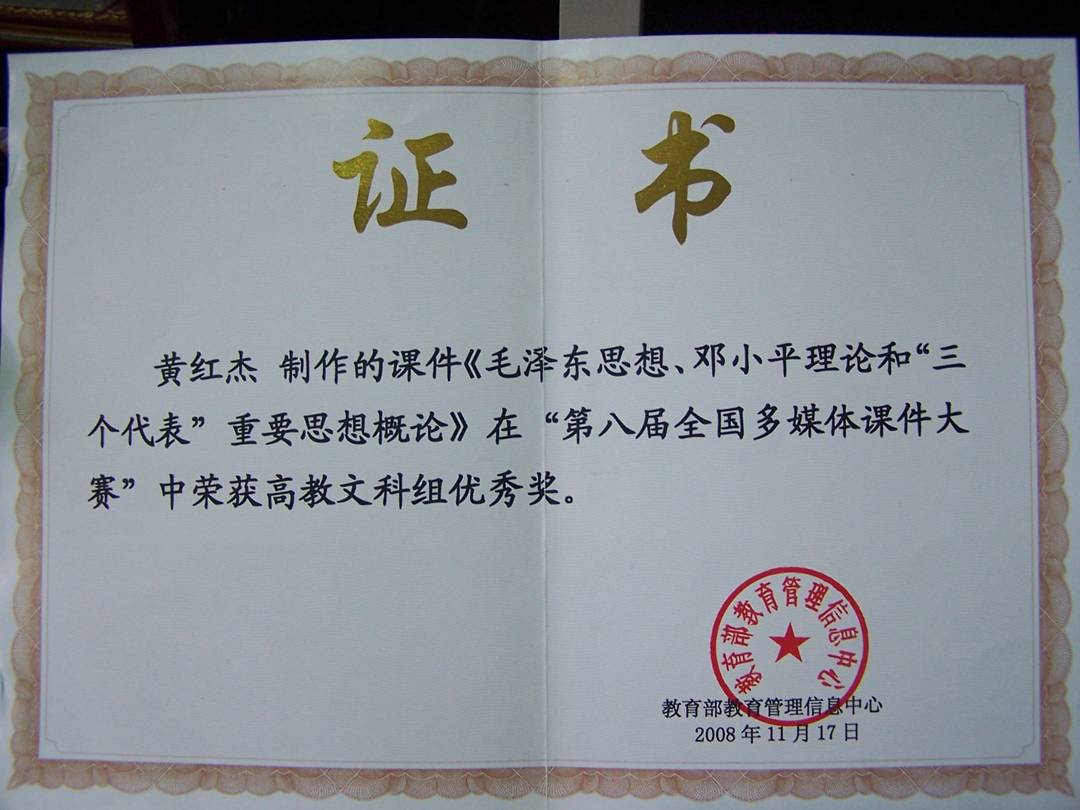 证 书
黄红杰 制作的课件《毛泽东思想、邓小平理论和“三
个代表”重要思想概论》在“第八届全国多媒体课件大
赛”中荣获高教文科组优秀奖。
教育部教育管理信息中心
教育部教育管理信息中心
2008年11月17日